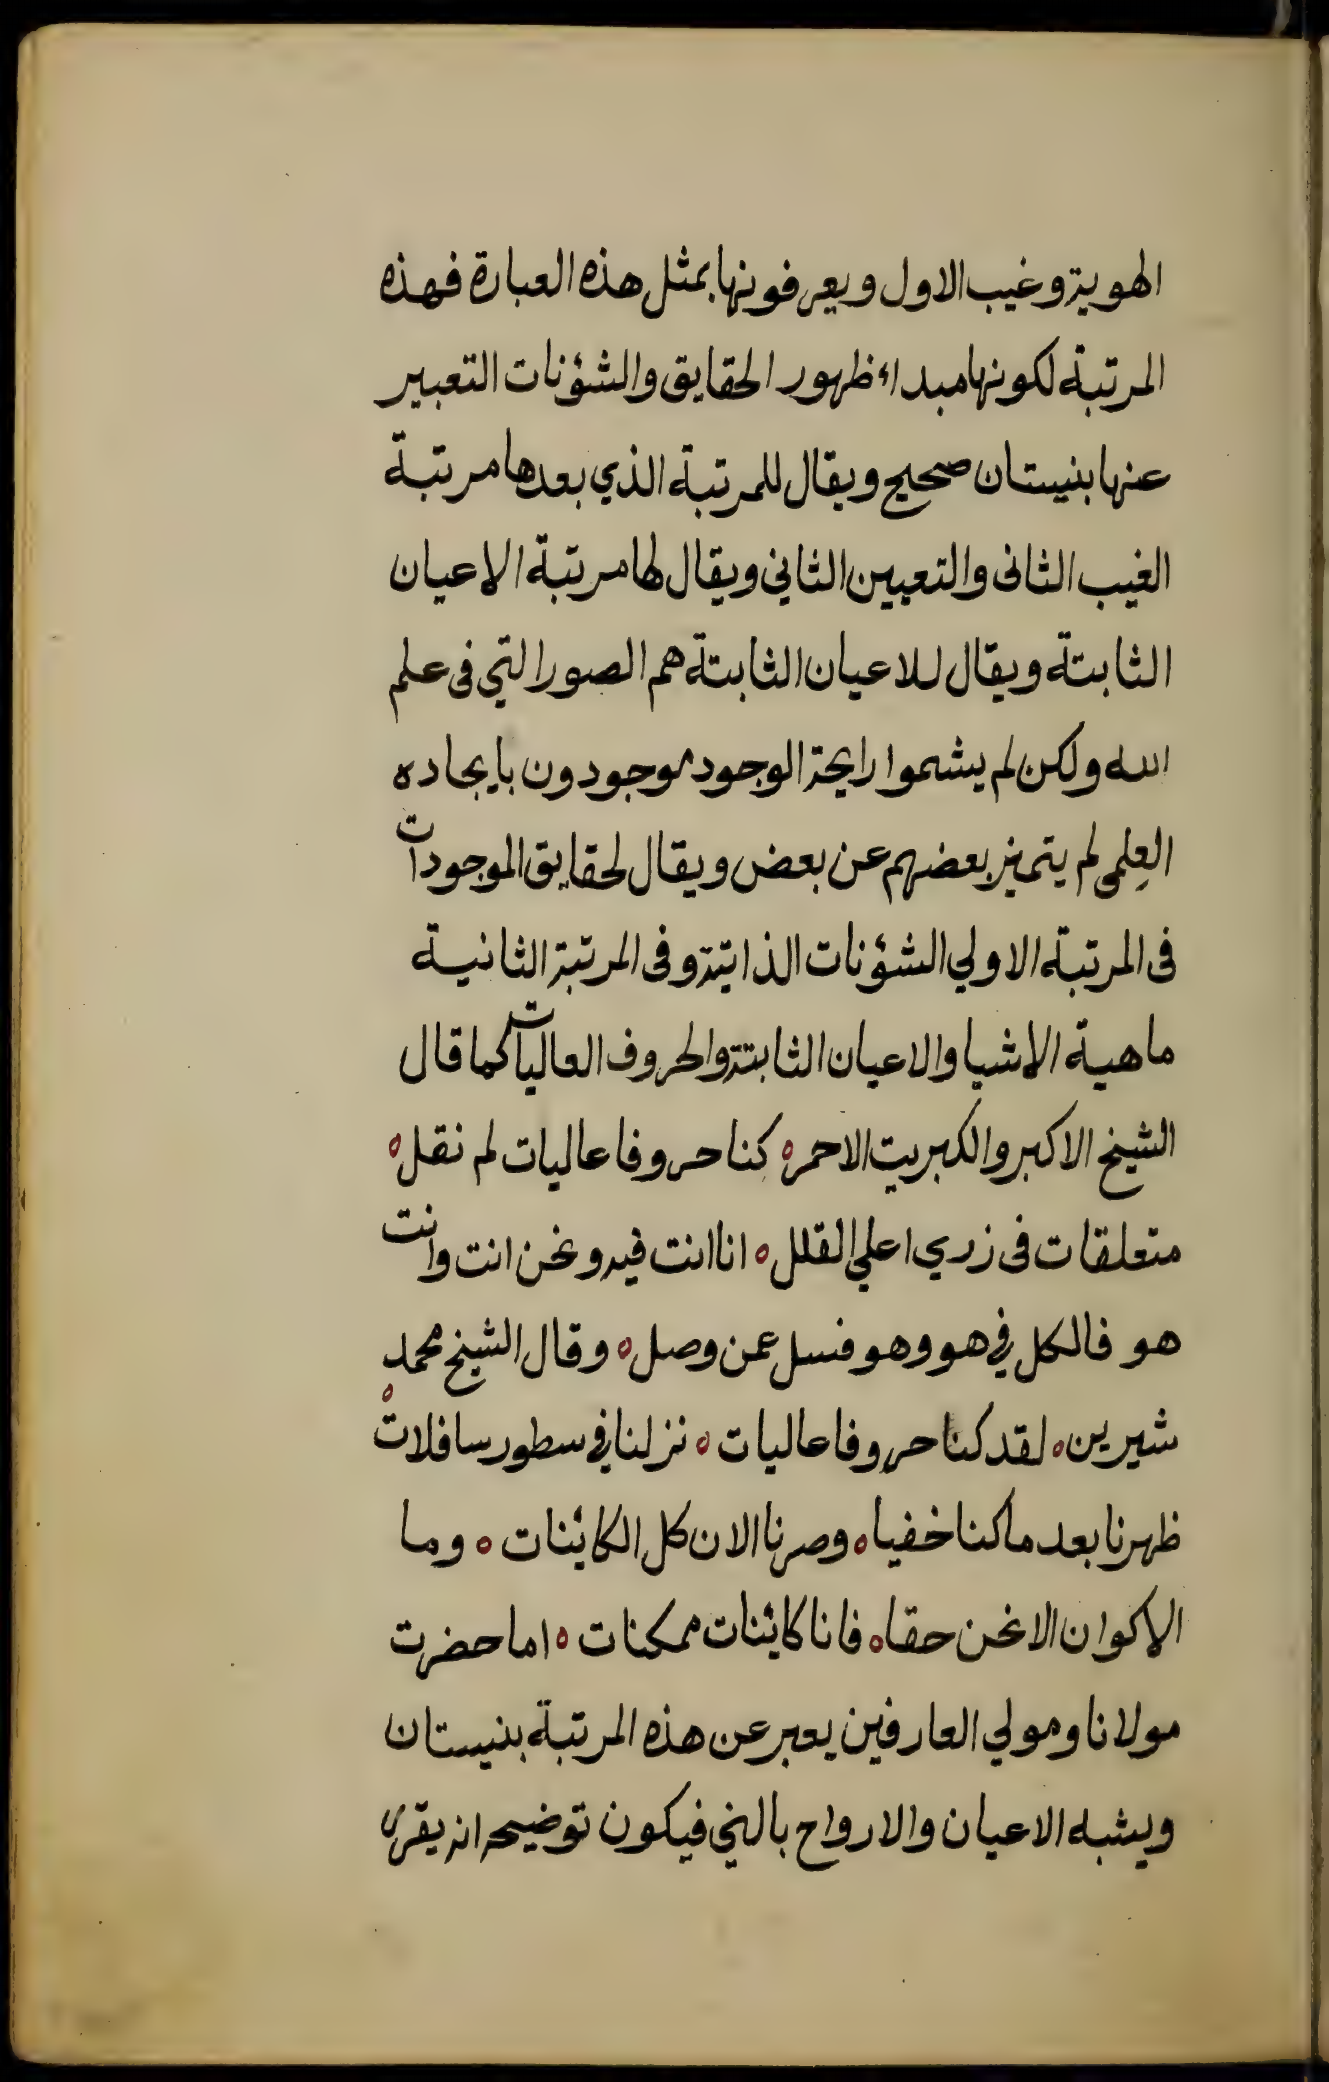 الهوية وغيب الاول ويعرفونها بمثل هذه العبارة فهذه
المرتبة لكونها مبداء ظهور الحقايق والشؤنات التعبير
عنها بنيستان صحيح ويقال للمرتبة الذي بعدها مرتبة
الغيب الثانى والتعيين الثاني ويقال لها مرتبة الاعيان
الثابتة ويقال للاعيان الثابتة هم الصور التي فى علم
الله ولكن لم يشموا رايحة الوجود موجودون بايجاده
العِلمى لم يتميز بعضهم عن بعض ويقال لحقايق الموجودات
فى المرتبة الاولي الشؤنات الذاتية وفى المرتبة الثانية
ماهية الاشيا والاعيان الثابتة والحروف العاليات كما قال
الشيخ الاكبر والكبريت الاحمر ه كنا حروفا عاليات لم نقل ه
متعلقات فى زري اعلي القلل ه انا انت فيه ونحن انت وانت
هو فالكل في هو وهو فسل عمن وصل ه وقال الشيخ محمد
شيرين ه لقد كنا حروفا عاليات ه نزلنا في سطور سافلات ه
ظهرنا بعد ما كنا خفيا ه وصرنا الان كل الكائنات ه وما
الاكوان الا نحن حقا ه فانا كائنات ممكنات ه اما حضرت
مولانا ومولي العارفين يعبر عن هذه المرتبة بنيستان
ويشبه الاعيان والارواح بالني فيكون توضيحه انه يقرر